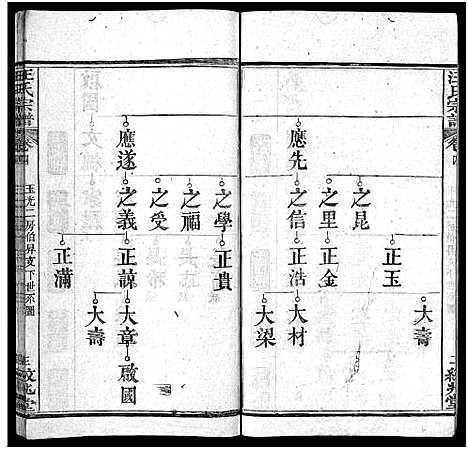 汪氏宗譜
卷四
應先
之昆
之里
之信
正玉
正金
正浩
大壽
大材
大梁
之學
之福
之受
應遂
之義
正貴
正諒
正滿
大章
大壽
啟國
汪氏宗譜
卷四
玉光二房伯昇支下世系圖